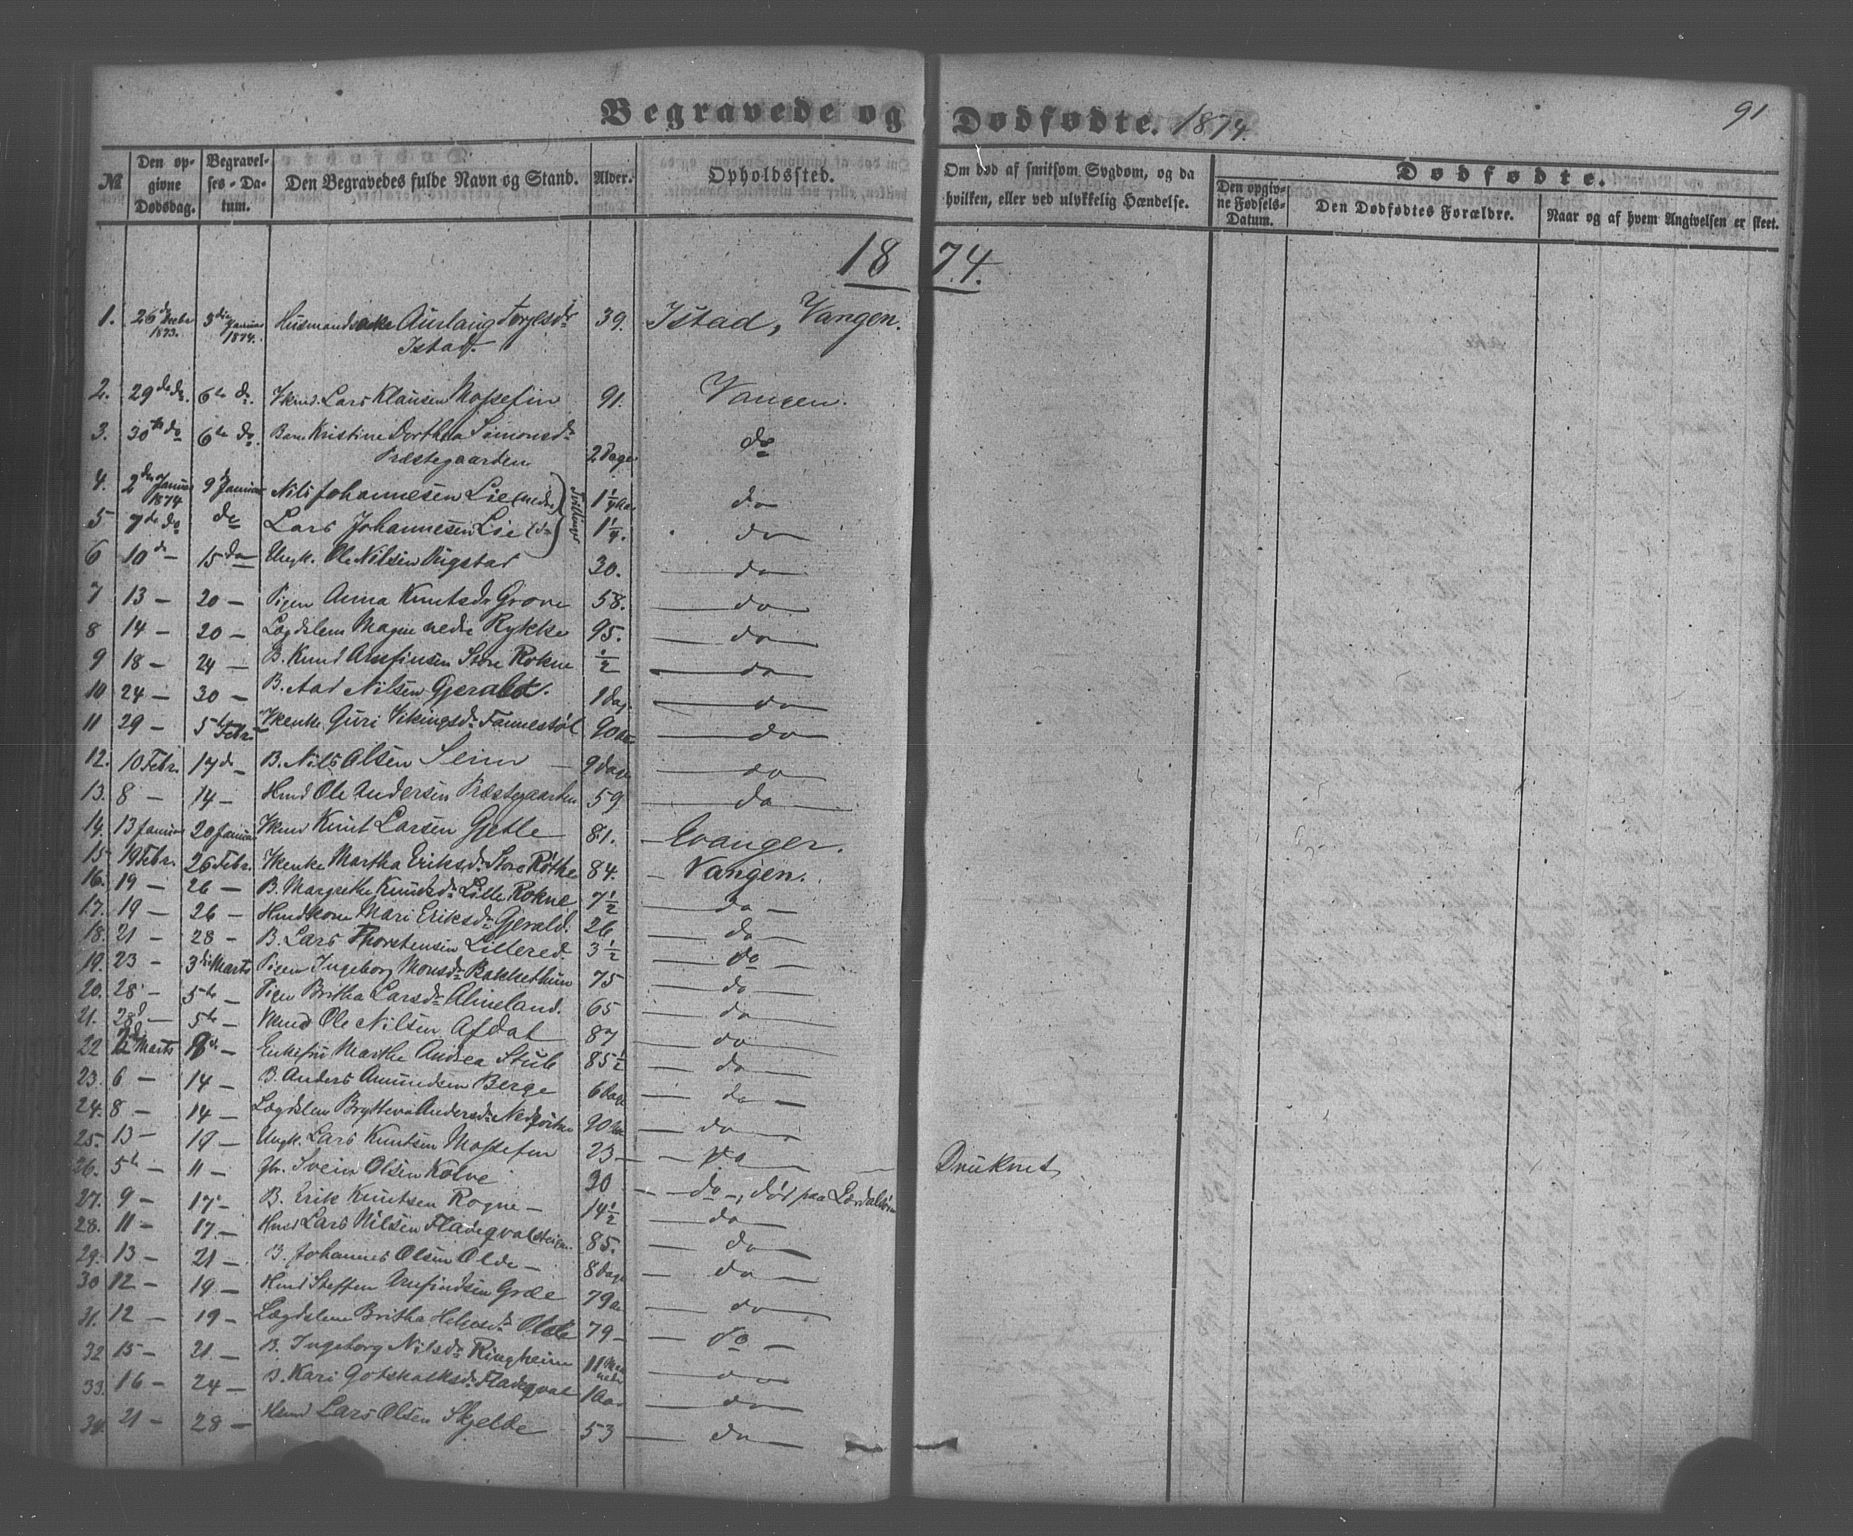 91
Begravede og Dødfødte. 1874.
№
Den opgivne Dødsdag.
Begravelses-Datum.
Den Begravedes fulde Navn og Stand.
Alder.
Opholdssted.
Om død af smitsom Sygdom, og da hvilken, eller ved ulykkelig Hændelse.
Dødfødte.
Den opgivne Fødsels-Datum.
Den Dødfødtes Forældre.
Naar og af hvem Angivelsen er skeet.
1874.
1. 26 Decbr 1873. 5 Januar 1874. Husmandsenke Aurlaug Torjesdr Istad. 39. Istad, Vangen.
2. 29 do. 6te do. Kmd. Lars Klausen Mossefin 91. Vangen.
3. 30 do 6te do. Barn Kristine Dorthea Simonsdr Præstegaarden 2 Dage do
4. 2den Januar 1874 9 Januar Nils Johannesen Lie (nedre) Tvillinger 1 1/4 Aar do
5 7de do do Lars Johannesen Lie (do 1 1/4. do
6 10 de — 15 de — Ungk. Ole Nilsen Rigstad 30. — do —
7 13 — 20 — Pigen Anna Knutsdr Grove 58. — do —
8 14 — 20 — Lægdslem Magne nedre Rykke 95. — do —
9 18 — 24 — B. Knud Arnfinsen Store Rokne 1/2 — do —
10 24 — 30 — B. Aad Nilsen Gjerald. 1 Dag — do —
11 29 — 5te Febr. Kenke Guri Vikingsdr Fannestøl 90 — do —
12. 10 Febr. 17 de — B. Nils Olsen Seim — 9 Dage — do —
13. 8 — 14 — Hmd Ole Andersen Præstegaarden 59 — do —
14. 13 Januar 20 Januar Kmd Knut Larsen Gjelle 81. — Evanger.
15 19 Febr. 26 Febr. Kenke Martha Eriksdr Store Røthe 84. — Vangen.
16. 19 — 26 — B. Margrethe Knudsdr Lille Rokne 7 1/2 — do —
17. 19 — 26 — Hmdkone Mari Eriksdr Gjerald. 26 — do —
18. 21 — 28 — B. Lars Thorstensen Lillered. 3 1/2 — do —
19. 23 — 3die Marts Pigen Ingeborg Monsdr Bakkethun 75 — do —
20. 28 — 5te — Pigen Britha Larsdr Almeland. 65 — do —
21. 28 — 5te — Kmd Ole Nilsen Afdal 87 — do —
22 2 Marts 9 — Enkefru Marthe Andrea Stub 85 1/2 — do —
23. 6 — 14 — B. Anders Amundsen Berge 6 Dage — do —
24. 8 — 14 — Lægdslem Brytteva Andersdr 90 — do —
25. 13 — 19 — Ungk. Lars Knutsen Mossefin 23 — do —
26. 5te — 11 — Svein Olsen Kolve 20 — do —, død paa Lærdalsøren Druknet
27. 9 — 17 — B. Erik Knutsen Rogne — 14 1/2 — do —
28. 11 — 17 — Hmd Lars Nilsen Fladeqval 85. — do —
29. 13 — 21 — B. Johannes Olsen Olde — 8 Dage — do —
30 12 — 19 — Hmd Steffen Arnfindsen Græe 79 — do —
31. 12 — 19 — Lægdslem Britha Helgesdr Olde 79 — — do —
32 15 — 21 — B. Ingeborg Nilsdr Ringheim 11 Maaneder — do —
33. 16 — 24 — B. Kari Gotskalksdr Fladeqval 1 Aar — do —
34. 21 — 28 — Hmd Lars Olsen Skjelde 53 — do —